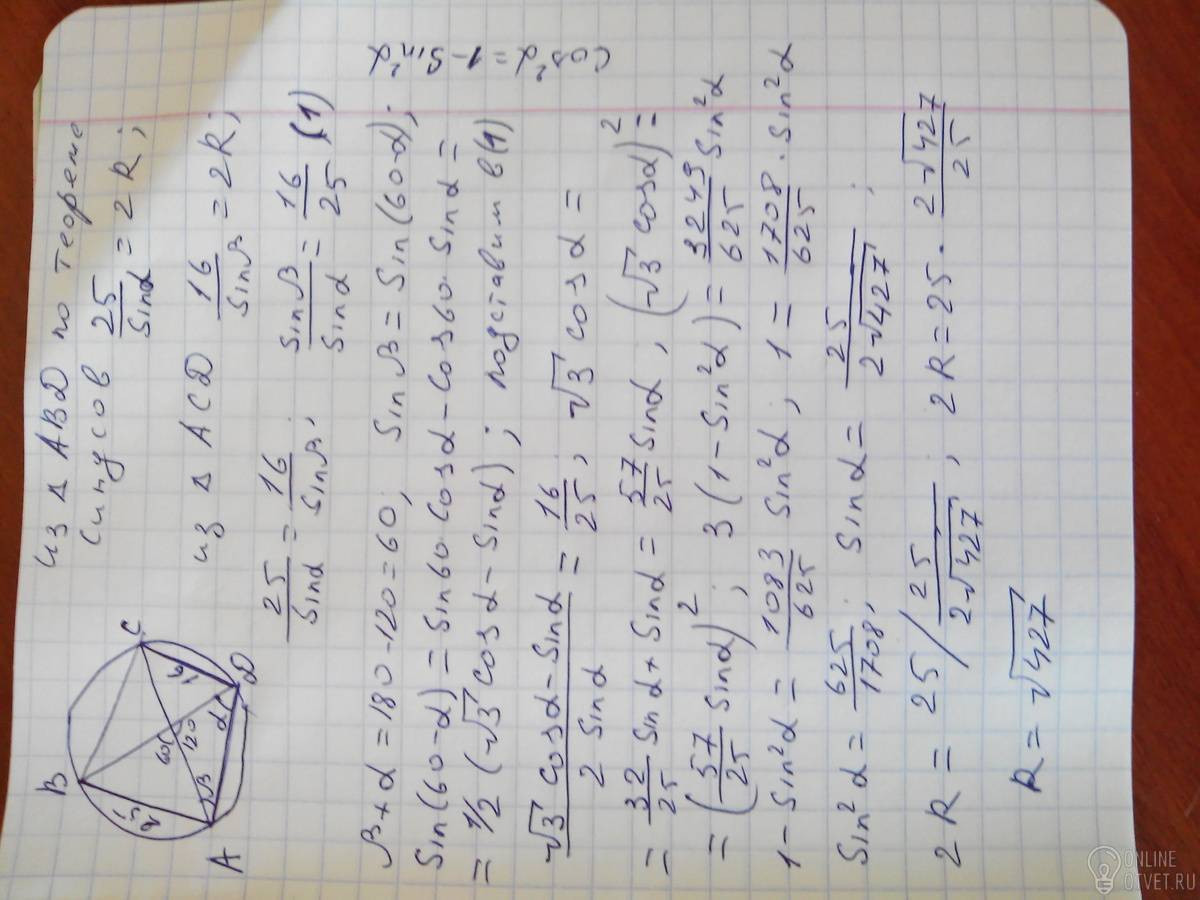 из Δ ABD по теореме
синусов 25/Sinα = 2R;
из Δ ACD 16/Sinβ = 2R;
25/Sinα = 16/Sinβ; Sinβ/Sinα = 16/25 (1)
β+α=180-120=60; Sinβ=Sin(60-α);
Cos²α=1-Sin²α
Sin(60-α)=Sin60·Cosα-Cos60·Sinα=
=1/2(√3Cosα-Sinα); подставим в(1)
(√3Cosα-Sinα)/(2Sinα) = 16/25, √3Cosα=
=32/25 Sinα+Sinα=57/25 Sinα, (√3cosα)²=
=(57/25 Sinα)²; 3(1-Sin²α)=3249/625 Sin²α
1-Sin²α=1083/625 Sin²α, 1=1708/625·Sin²α
Sin²α=625/1708; Sinα=25/(2√427);
2R=25/(25/(2√427)), 2R=25·2√427/25
R=√427
B
C
A
D
25
16
60
120
β
α
ONLINE
OTVET.RU